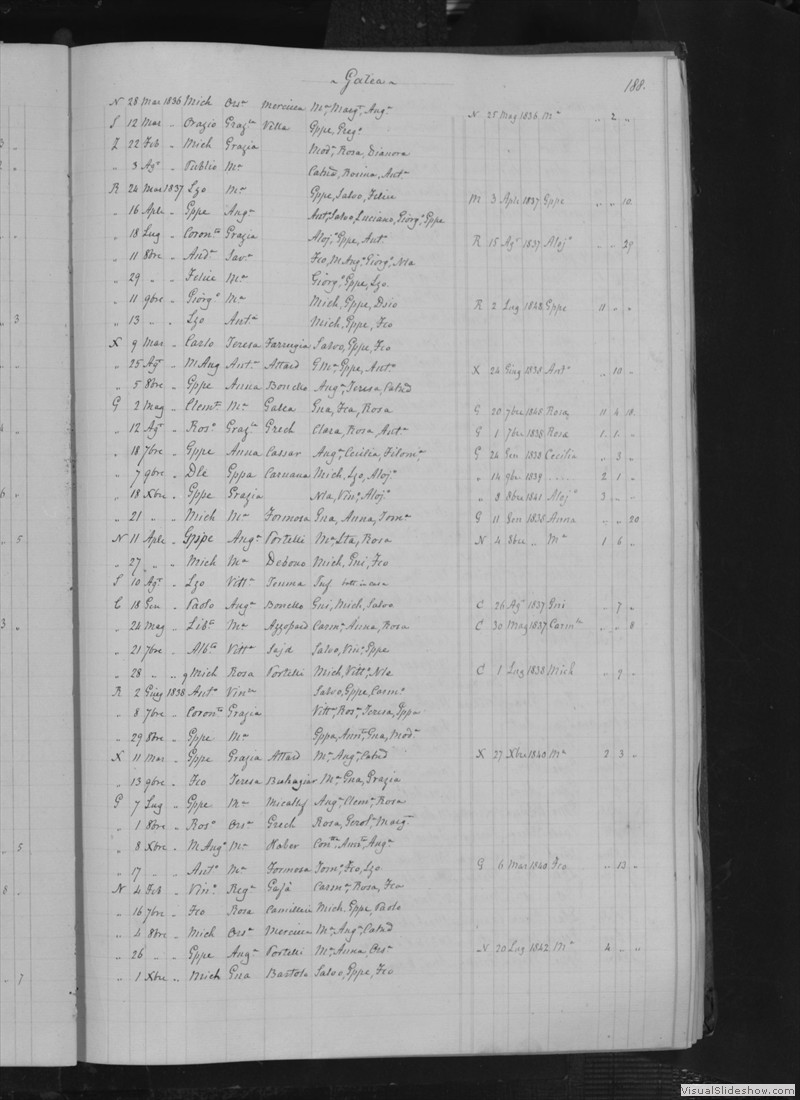 ~ Galea ~
188.
N 28 Mar 1836 Mich Orsᵃ Mercieca Mᵃ, Margᵗ, Angᵃ N 25 Mag 1836 Mᵃ " 2 "
S 12 Mar " Orazio Grazˡᵃ Villa Gppe, Gregᵒ
Z 22 Feb " Mich Grazia Modᵃ, Rosa, Dianora
" 3 Agᵗ " Publio Mᵃ Catᵈ, Antᵃ
R 24 Mar 1837 Lzo Mᵃ Gppe, Salvo, Felice M 3 Aple 1837 Gppe " " 10
" 16 Aple " Gppe Angᵃ Antᵒ, Salvo, Luciano, Giorgᵒ, Gppe
" 18 Lug " Coronᵗᵒ Grazia Alojᵒ, Gppe, Antᵒ R 15 Agᵗ 1837 Alojᵒ " " 29
" 11 8bre " Andᵃ Savᵃ Fco, M Angᵒ, Giorgᵒ, Nla
" 29 " " Felice Mᵃ Giorgᵒ, Gppe, Lzo
" 11 9bre " Giorgᵒ Mᵃ Mich, Gppe, Dsio R 2 Lug 1848 Gppe 11 " "
" 13 " " Lzo Antᵃ Mich, Gppe, Fco
X 9 Mar " Carlo Teresa Farrugia Salvo, Gppe, Fco
" 25 Agᵗ " M Ang Antᵃ Attard G Mᵃ, Gppe, Antᵒ X 24 Giug 1838 Antᵒ " 10 "
" 5 8bre " Gppe Anna Bonello Angᵃ, Teresa, Catᵈ
G 2 Mag " Clemᵗᵉ Mᵃ Galea Gna, Fca, Rosa G 20 7bre 1848 Rosa 11 4 18
" 12 Agᵗ " Rosᵒ Grazˡᵃ Grech Clara, Rosa, Antᵃ G 1 7bre 1838 Rosa 1 1 "
" 18 7bre " Gppe Anna Cassar Angᵃ, Cecilia, Filomᵃ G 24 Gen 1838 Cecilia " 3 "
" 7 9bre " Dle Gppa Caruana Mich, Lzo, Alojᵒ " 14 9bre 1839 ..... 2 1 "
" 18 Xbre " Gppe Grazia Nla, Vinᵒ, Alojᵒ " 8 8bre 1841 Alojᵒ 3 " "
" 21 " " Mich Mᵃ Formosa Gna, Anna, Tomᵃ G 11 Gen 1838 Anna " " 20
N 11 Aple " Gppe Angᵃ Portelli Mᵃ, Lta, Rosa N 4 8bre " Mᵃ 1 6 "
" 27 " " Mich Mᵃ Debono Mich, Gni, Fco
S 10 Agᵗ " Lzo Vittᵃ
C 18 Gen " Paolo Angᵃ Bonello Gni, Mich, Salvo C 26 Agᵗ 1837 Gni " 7 "
" 24 Mag " Libᵒ Mᵃ Azzopard Carmᵃ, Anna, Rosa C 30 Mag 1837 Carmˡᵃ " " 8
" 21 7bre " Albᵒ Vittᵃ Sajd Salvo, Vinᵒ, Gppe
" 28 " " Mich Rosa Portelli Mich, Vittᵒ, Nla C 1 Lug 1838 Mich " 9 "
R 2 Giug 1838 Antᵒ Vinˡᵃ Salvo, Gppe, Carmᵒ
" 8 7bre " Coronᵗᵒ Grazia Vittᵃ, Rosᵃ, Teresa, Gppa
" 29 8bre " Gppe Mᵃ Gppa, Annᵃ, Gna, Modᵃ
X 11 Mar " Gppe Grazia Attard Mᵃ, Angᵃ, Catᵈ X 27 Xbre 1840 Mᵃ 2 3 "
" 13 9bre " Fco Teresa Buhagiar Mᵃ, Gna, Grazia
G 7 Lug " Gppe Mᵃ Micallef Angᵃ, Clemᵃ, Rosa
" 1 8bre " Rosᵒ Orsᵃ Grech Rosa, Gerotᵃ, Margᵗ
" 8 Xbre " M Angᵒ Mᵃ Haber Conᵗᵗᵃ, Annᵃ, Angᵃ
" 17 " " Antᵒ Mᵃ Formosa Tomᵒ, Fco, Lzo G 6 Mar 1840 Fco " 13 "
N 4 Feb " Vinᵒ Regᵃ Gafà Carmᵃ, Rosa, Fca
" 16 7bre " Fco Rosa Camilleri Mich, Gppe, Paolo
" 4 8bre " Mich Orsᵃ Mercieca Mᵃ, Angᵃ, Catᵈ
" 26 " " Gppe Angᵃ Portelli Mᵃ, Anna, Orsᵃ N 20 Lug 1842 Mᵃ 4 " "
" 1 Xbre " Mich Gna Bastola Salvo, Gppe, Fco
VisualSlideshow.com